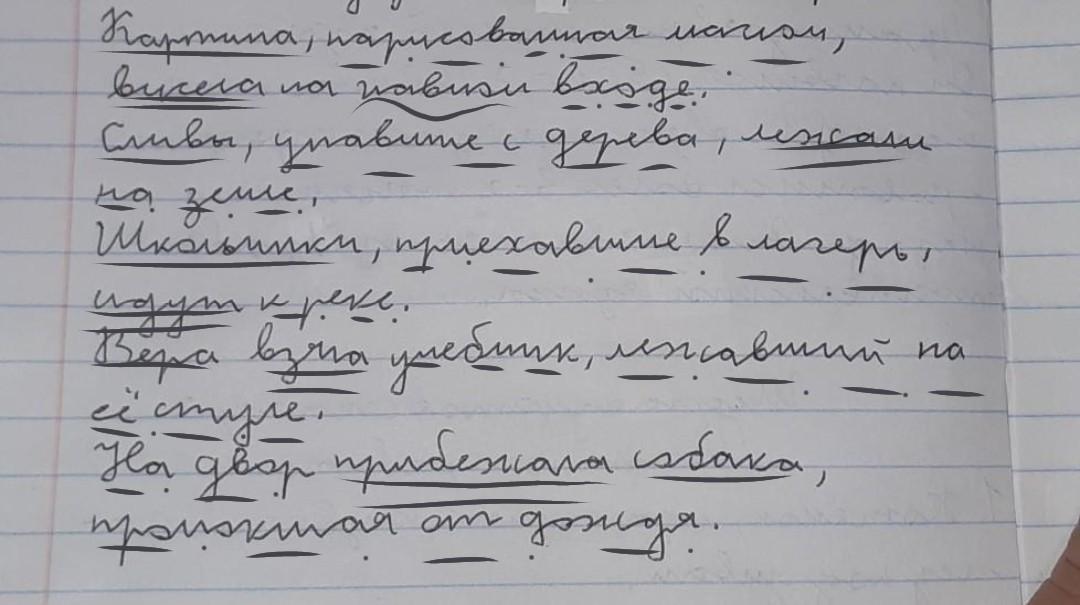 Картина, нарисованная мамой,
висела на главном входе.
Сливы, упавшие с дерева, лежали
на земле.
Школьники, приехавшие в лагерь,
идут к реке.
Вера взяла учебник, лежавший на
её стуле.
На двор прибежала собака,
промокшая от дождя.